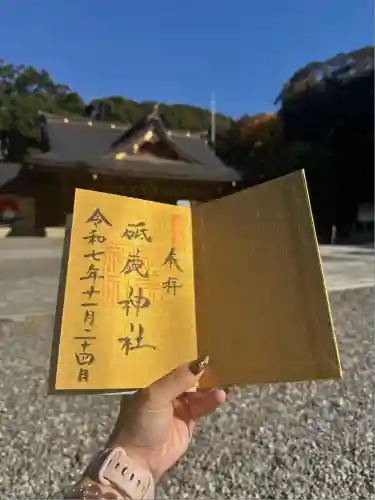 奉拝
砥鹿神社
令和七年十一月二十四日